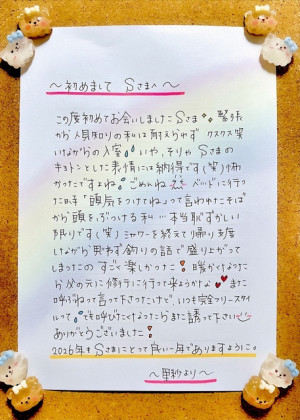 〜初めまして Sさまへ〜
この度初めてお会いしましたSさま 緊張
から人見知りの私は耐えられず クスクス笑
いながらの入室 いや、そりゃSさまの
キョトンとした表情には納得です(笑)怖
かったですよね ごめんね ベッドに行っ
た時「頭気をつけてね」って言われたそば
から頭をぶつける私…本当恥ずかしい
限りです(笑)シャワーを終えて帰り支度
しながら思わず釣りの話で盛り上がって
しまったの すごく楽しかった 暖かくなった
ら父の元に修行に行って来ようかな また
呼ぶねって言って下さったけど、いつも完全フリースタイ
ルって でも呼びたくなったらまた誘って下さい
ありがとうございました!
2026年もSさまにとって良い一年でありますように。
〜里紗より〜